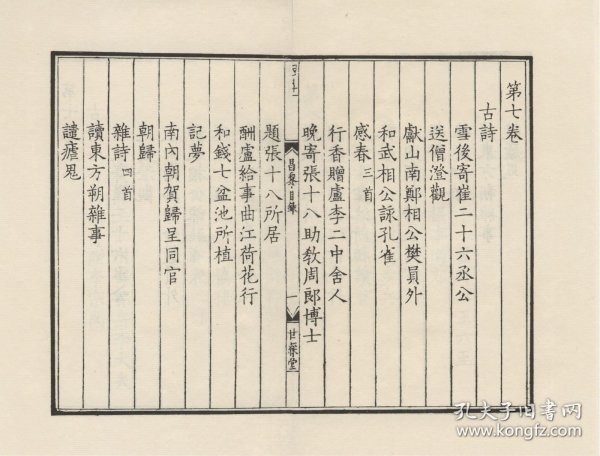 第七卷
古詩
雪後寄崔二十六丞公
送僧澄觀
獻山南鄭相公樊員外
和武相公詠孔雀
感春三首
行香贈盧李二中舍人
晚寄張十八助教周郎博士
昌黎目錄
一
甘棠堂
題張十八所居
酬盧給事曲江荷花行
和錢七盆池所植
記夢
南內朝賀歸呈同官
朝歸
雜詩四首
讀東方朔雜事
譴瘧鬼
孔夫子旧书网
www.kongfz.com